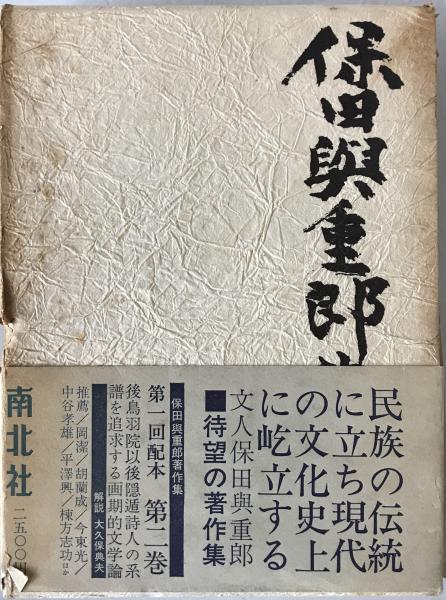 保田與重郎
民族の伝統
に立ち現代
の文化史上
に屹立する
文人保田與重郎
■待望の著作集
保田與重郎著作集
第一回配本 第二巻
後鳥羽院以後隠遁詩人の系
譜を追求する画期的文学論
解説 大久保典夫
推薦/岡潔/胡蘭成/今東光/
中谷孝雄/平澤興/棟方志功ほか
南北社
二五〇〇円